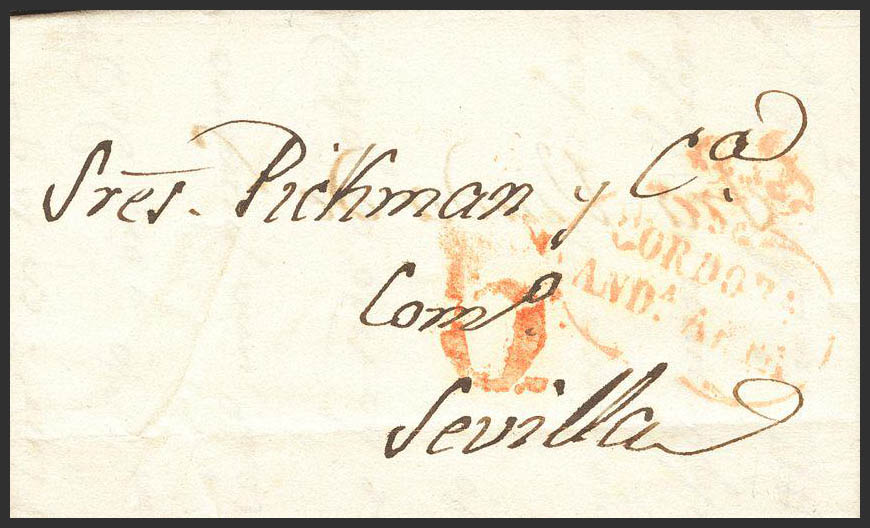 Sres. Pickman y Cª
Comº
Sevilla
6
CORDOBA
ANDA. BAJA